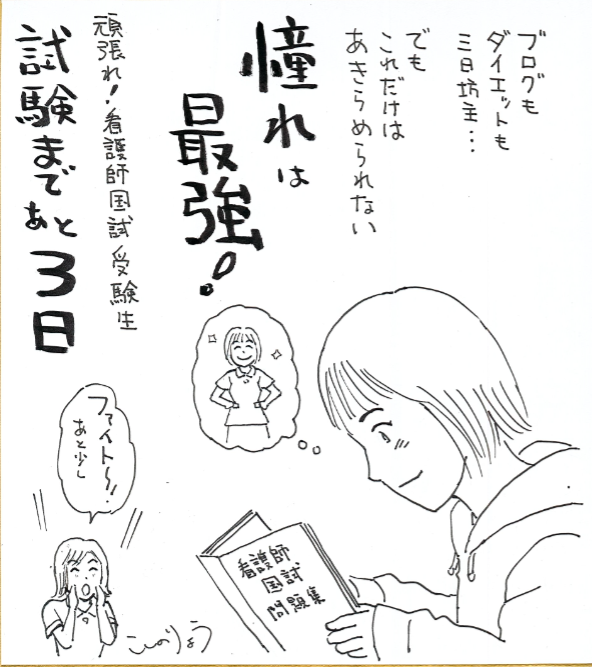 ブログも
ダイエットも
三日坊主…
でも
これだけは
あきらめられない
憧れは
最強!
頑張れ!看護師国試受験生
試験まで
あと3日
ファイト〜!!
あと少し
看護師
国試
問題集